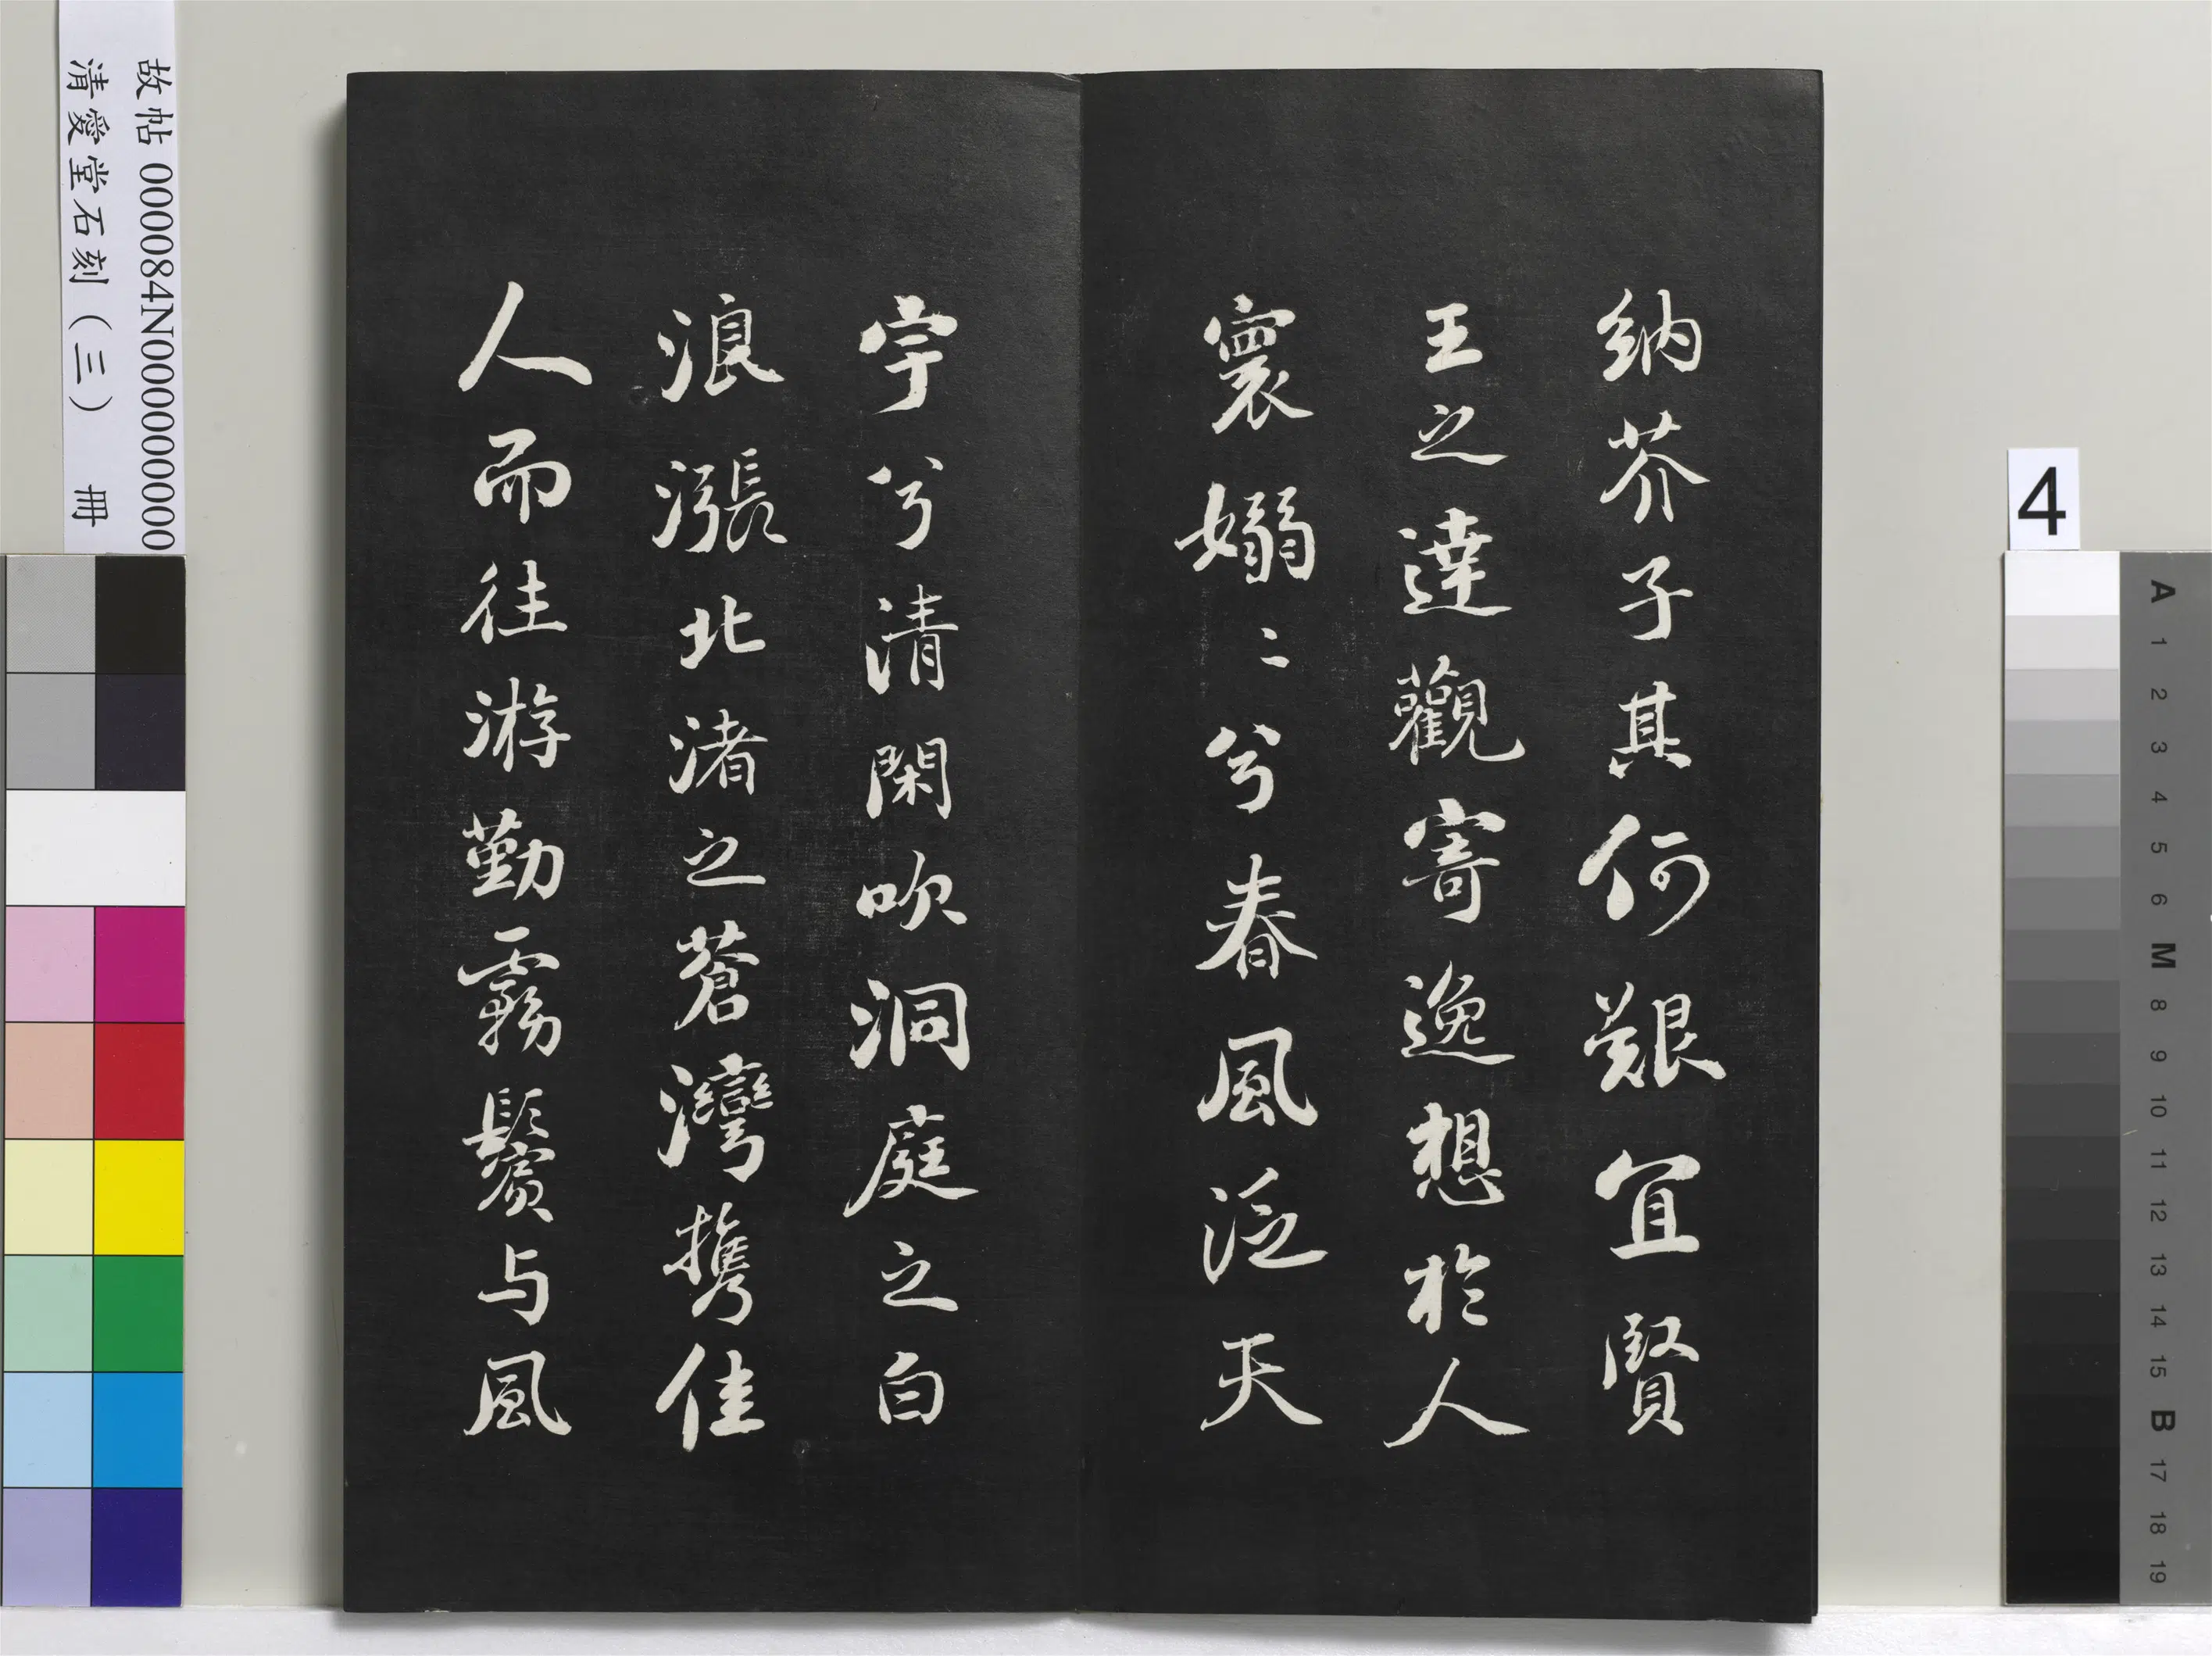 納芥子其何艱宜賢
王之達觀寄逸想於人
寰嫋〻兮春風泛天
宇兮清閑吹洞庭之白
浪漲北渚之蒼灣攜佳
人而往游勤霧鬢与風
故帖 000084N000000000
清愛堂石刻（三） 冊
4
A 1 2 3 4 5 6 M 8 9 10 11 12 13 14 15 B 17 18 19